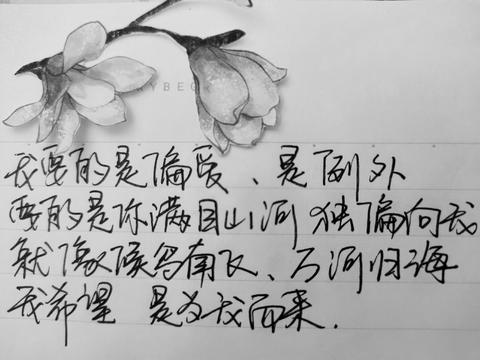 RYBECK
我要的是偏爱、是例外
要的是你满目山河 独偏向我
就像候鸟南飞、万河归海
我希望 是为我而来.